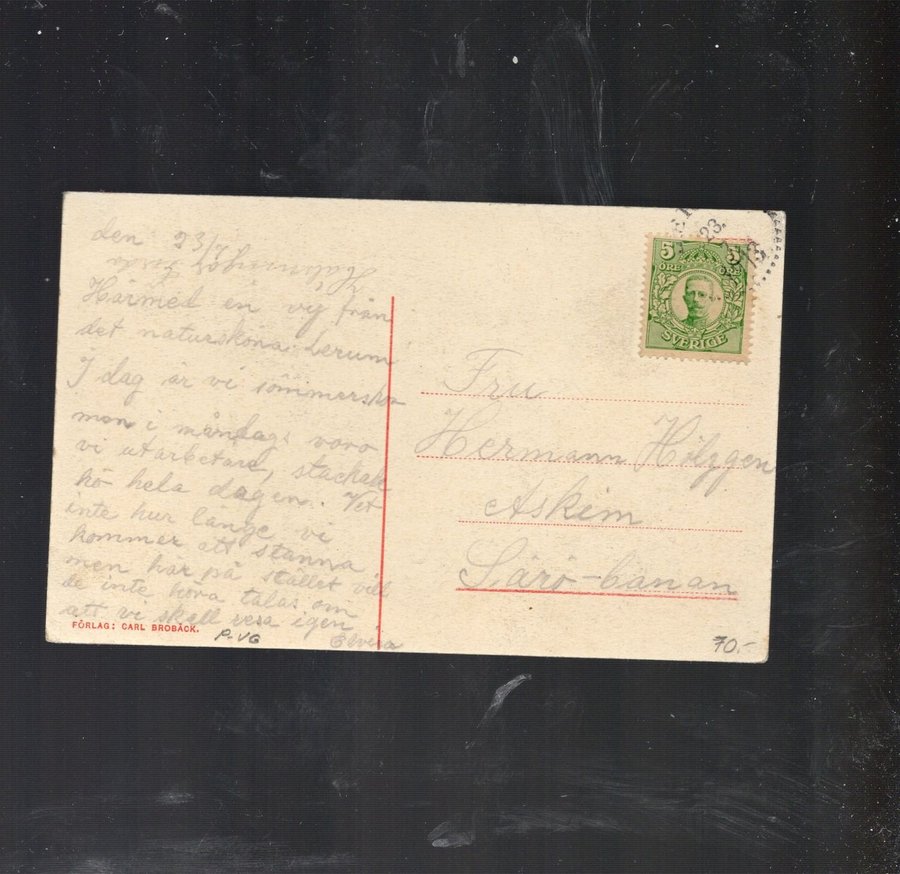 den 23/7
Härmed en vy från
det natursköna Lerum
I dag är vi
men i måndags voro
vi utarbetare, stackals
hö hela dagen. Vet
inte hur länge vi
kommer att stanna
men här på stället vill
de inte höra talas om
att vi skall resa igen
Elvira
FÖRLAG: CARL BROBÄCK.
P-VG
5 5
ÖRE ÖRE
SVERIGE
23.
Fru
Hermann
Askim
Särö-banan
70.-